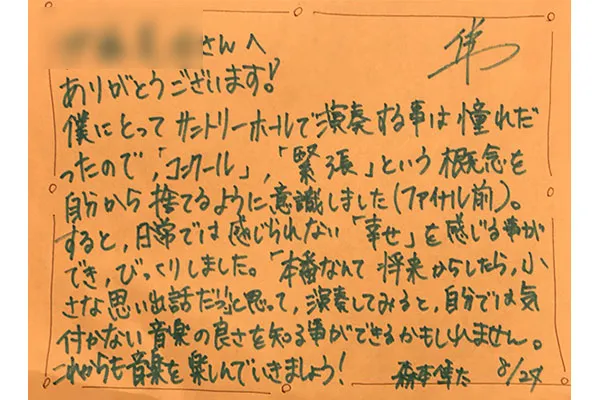 さんへ
隼
ありがとうございます!
僕にとってサントリーホールで演奏する事は憧れだ
ったので,「コンクール」,「緊張」という概念を
自分から捨てるように意識しました(ファイナル前)。
すると,日常では感じられない「幸せ」を感じる事が
でき,びっくりしました。「本番なんて将来からしたら,小
さな思い出話だろ」と思って,演奏してみると,自分では気
付かない音楽の良さを知る事ができるかもしれません。
これからも音楽を楽しんでいきましょう!
森本隼太 8/27